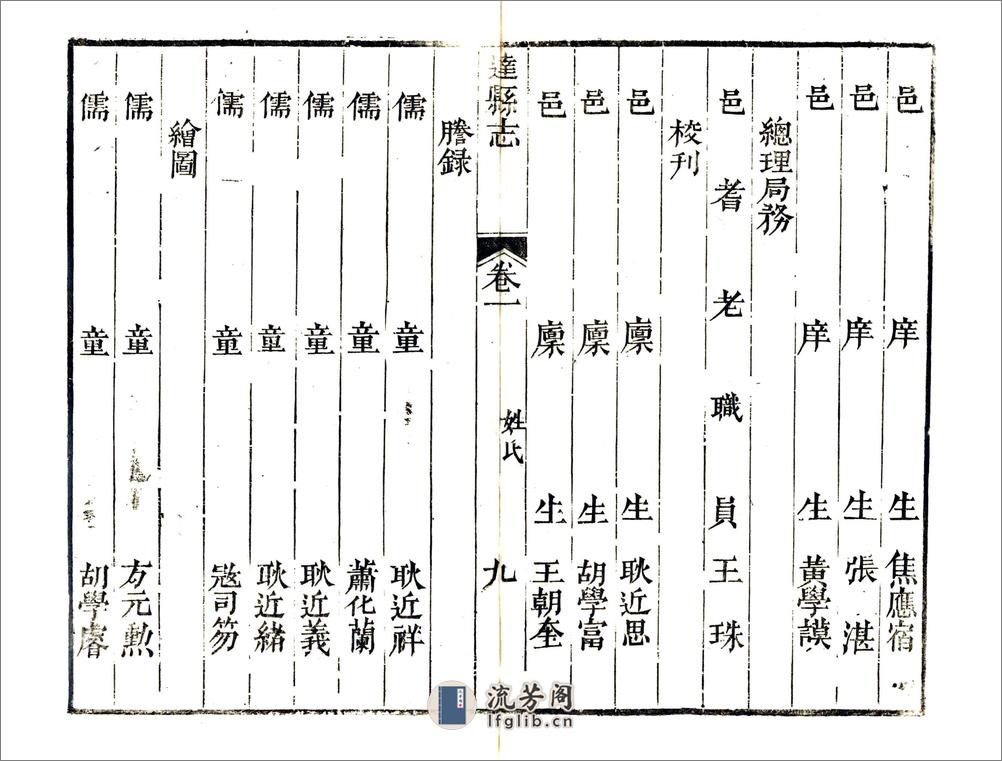 邑庠生焦應宿
邑庠生張湛
邑庠生黃學謨
總理局務
邑耆老職員王珠
校刊
邑廩生耿近思
邑廩生胡學富
邑廩生王朝奎
達縣志 卷一 姓氏 九
謄録
儒童耿近祥
儒童蕭化蘭
儒童耿近義
儒童耿近緒
儒童寇司笏
繪圖
儒童方元勲
儒童胡學睿
流芳阁
lfglib.cn